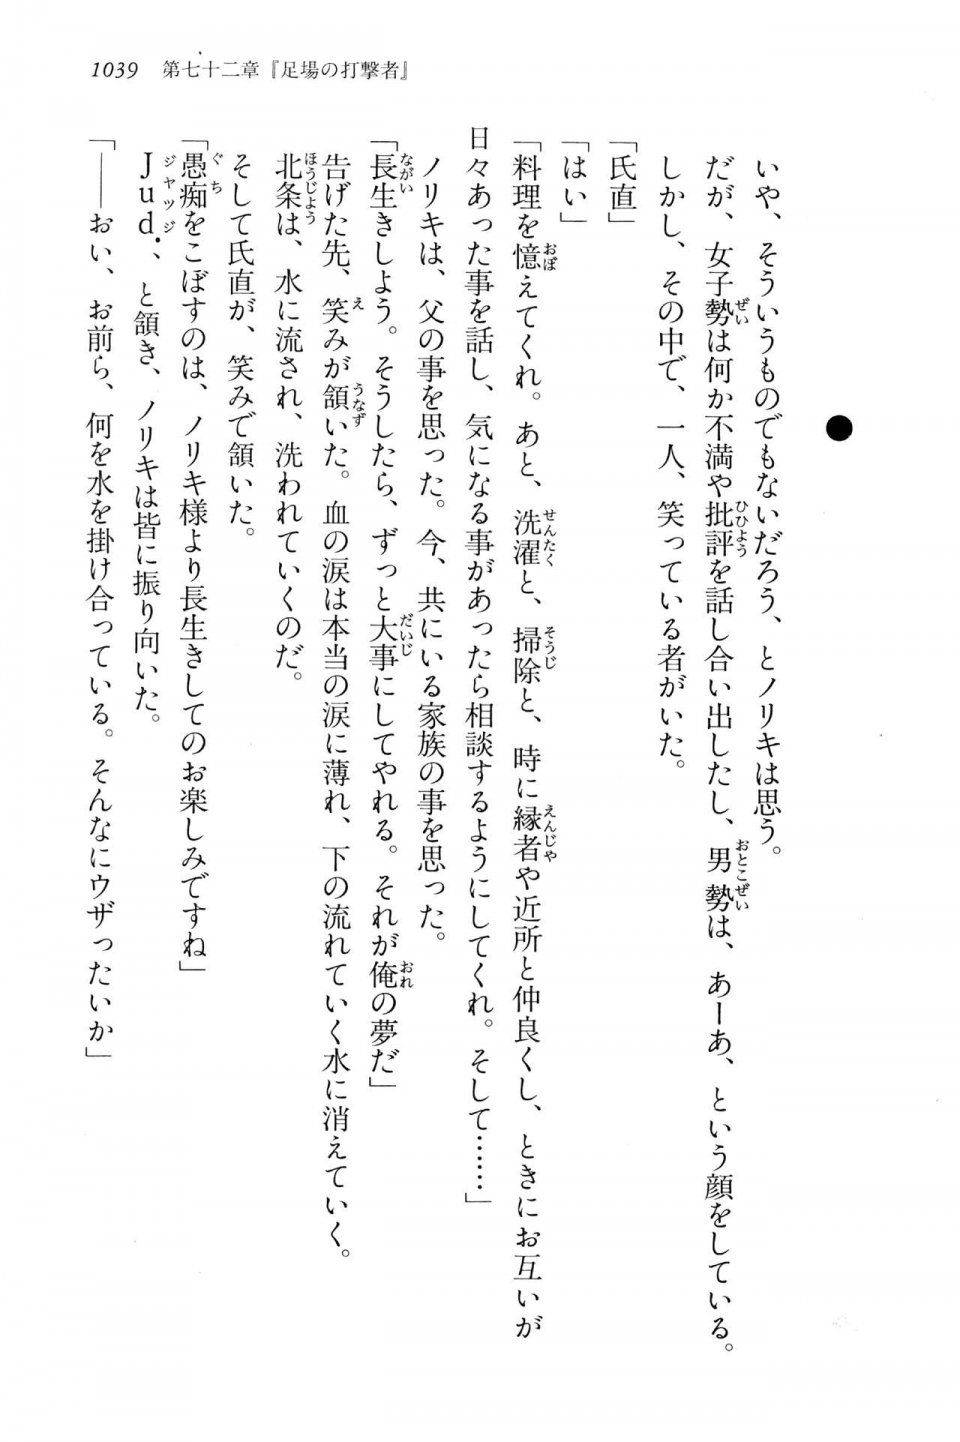 1039　第七十二章『足場の打撃者』
●
いや、そういうものでもないだろう、とノリキは思う。
だが、女子勢は何か不満や批評を話し合い出したし、男勢は、あーあ、という顔をしている。
しかし、その中で、一人、笑っている者がいた。
「氏直」
「はい」
「料理を憶えてくれ。あと、洗濯と、掃除と、時に縁者や近所と仲良くし、ときにお互いが
日々あった事を話し、気になる事があったら相談するようにしてくれ。そして……」
ノリキは、父の事を思った。今、共にいる家族の事を思った。
「長生きしよう。そうしたら、ずっと大事にしてやれる。それが俺の夢だ」
告げた先、笑みが頷いた。血の涙は本当の涙に薄れ、下の流れていく水に消えていく。
北条は、水に流され、洗われていくのだ。
そして氏直が、笑みで頷いた。
「愚痴をこぼすのは、ノリキ様より長生きしてのお楽しみですね」
Jud.、と頷き、ノリキは皆に振り向いた。
「――おい、お前ら、何を水を掛け合っている。そんなにウザったいか」